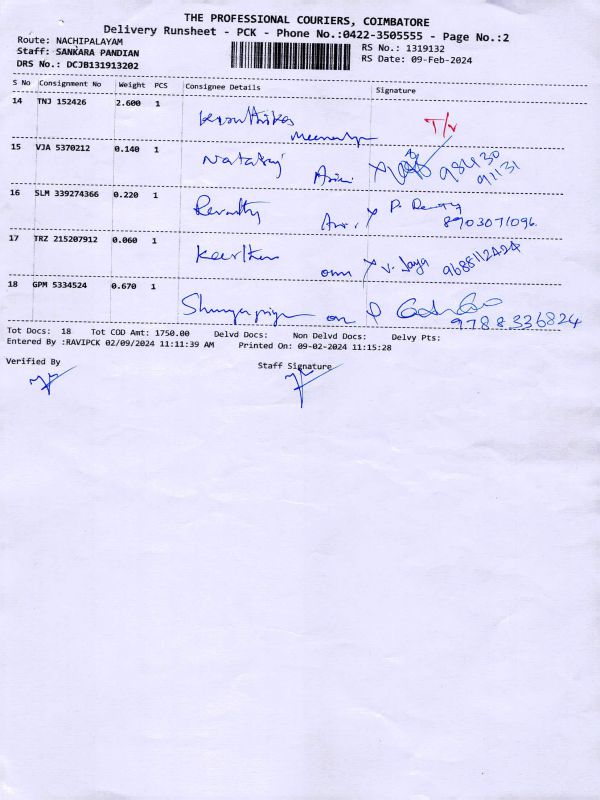 THE PROFESSIONAL COURIERS, COIMBATORE
Delivery Runsheet - PCK - Phone No.:0422-3505555 - Page No.:2
Route: NACHIPALAYAM
Staff: SANKARA PANDIAN
DRS No.: DCJB131913202
RS No.: 1319132
RS Date: 09-Feb-2024
S No Consignment No Weight PCS Consignee Details Signature
14 TNJ 152426 2.600 1 T/v
15 VJA 5370212 0.140 1 Nataraj 98430
91131
16 SLM 339274366 0.220 1 Revathy P. 8903071096
17 TRZ 215207912 0.060 1 Keerthu own V. Jaya 9688112424
18 GPM 5334524 0.670 1 on 9788336824
Tot Docs: 18 Tot COD Amt: 1750.00 Delvd Docs: Non Delvd Docs: Delvy Pts:
Entered By :RAVIPCK 02/09/2024 11:11:39 AM Printed On: 09-02-2024 11:15:28
Verified By Staff Signature